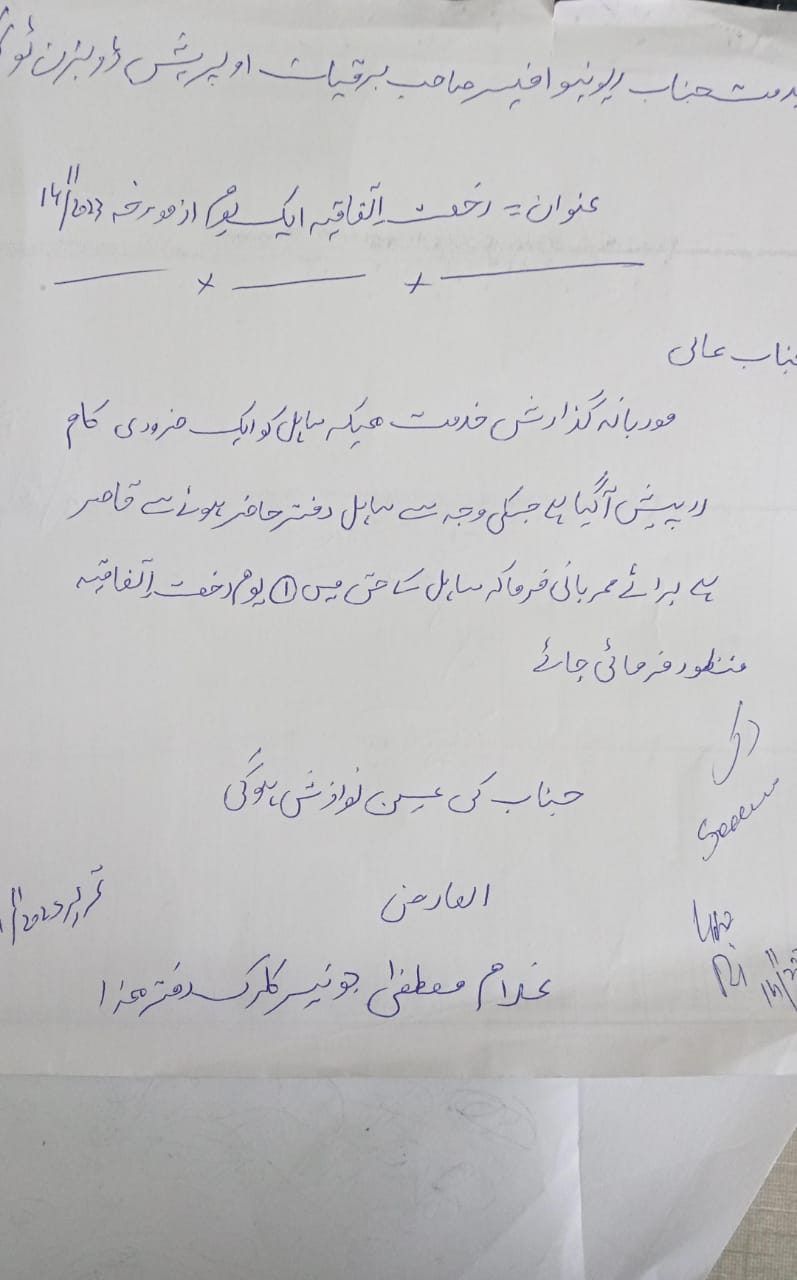 خدمت جناب ریونیو افیسر صاحب برقیات اوپریشن ڈویژن
عنوان = رخصت اتفاقیہ ایک یوم از مورخہ 14/11/2023
جناب عالی
مودبانہ گذارش خدمت ہیکہ سایل کو ایک ضروری کام
درپیش آگیا ہے جسکی وجہ سے سایل دفتر حاضر ہونے سے قاصر
ہے برائے مہربانی فرماکہ سایل کے حق میں ① یوم رخصت اتفاقیہ
منظور فرمائی جائے
جناب کی عین نوازش ہوگی
العارض
تحریر 11/2023
غلام مصطفیٰ جونیر کلرک دفتر ھذا